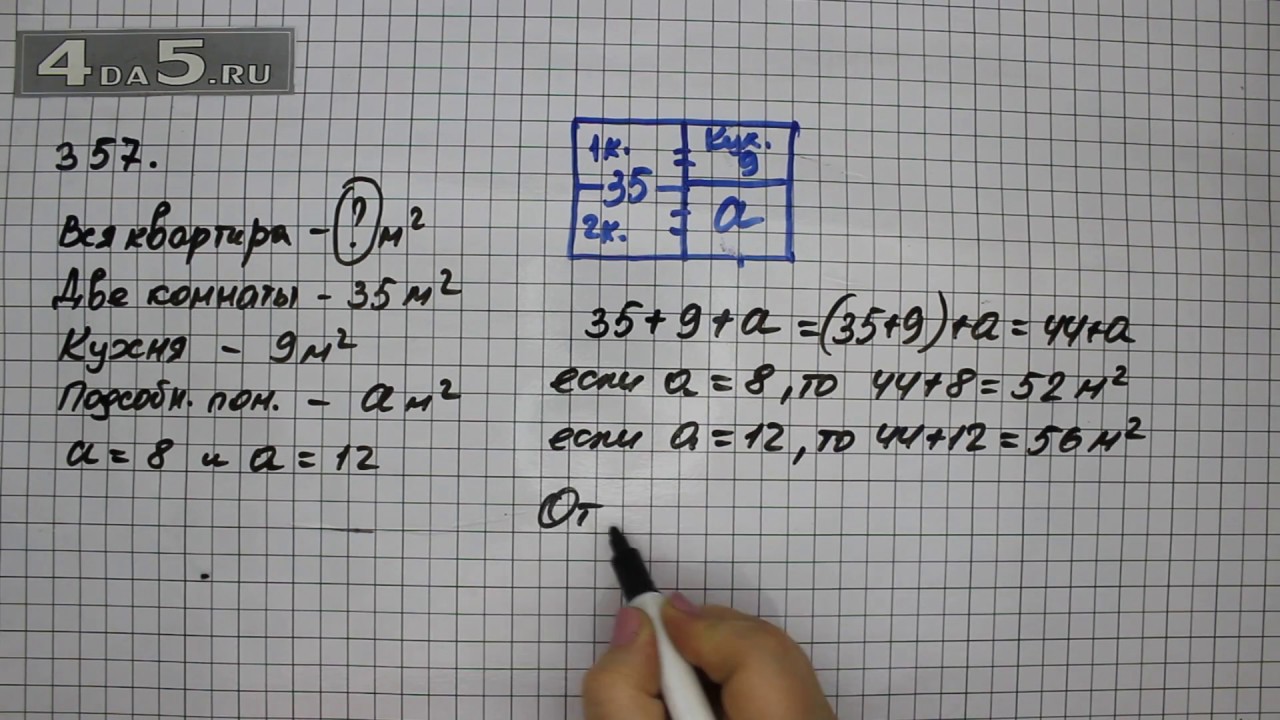 4DA5.RU
357.
Вся квартира - ? м²
Две комнаты - 35 м²
Кухня - 9 м²
Подсобн. пом. - a м²
a = 8 и a = 12
1к.
Кух.
9
35
2к.
a
35 + 9 + a = (35+9) + a = 44+a
если a = 8, то 44+8 = 52 м²
если a = 12, то 44+12 = 56 м²
От